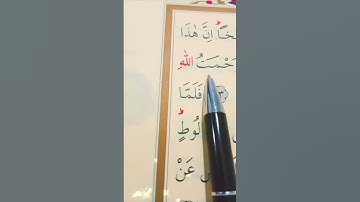 خًا اِنَّ هٰذَا
رَحْمَتُ اللّٰهِ
فَلَمَّا
لُوطٍ
عَنْ